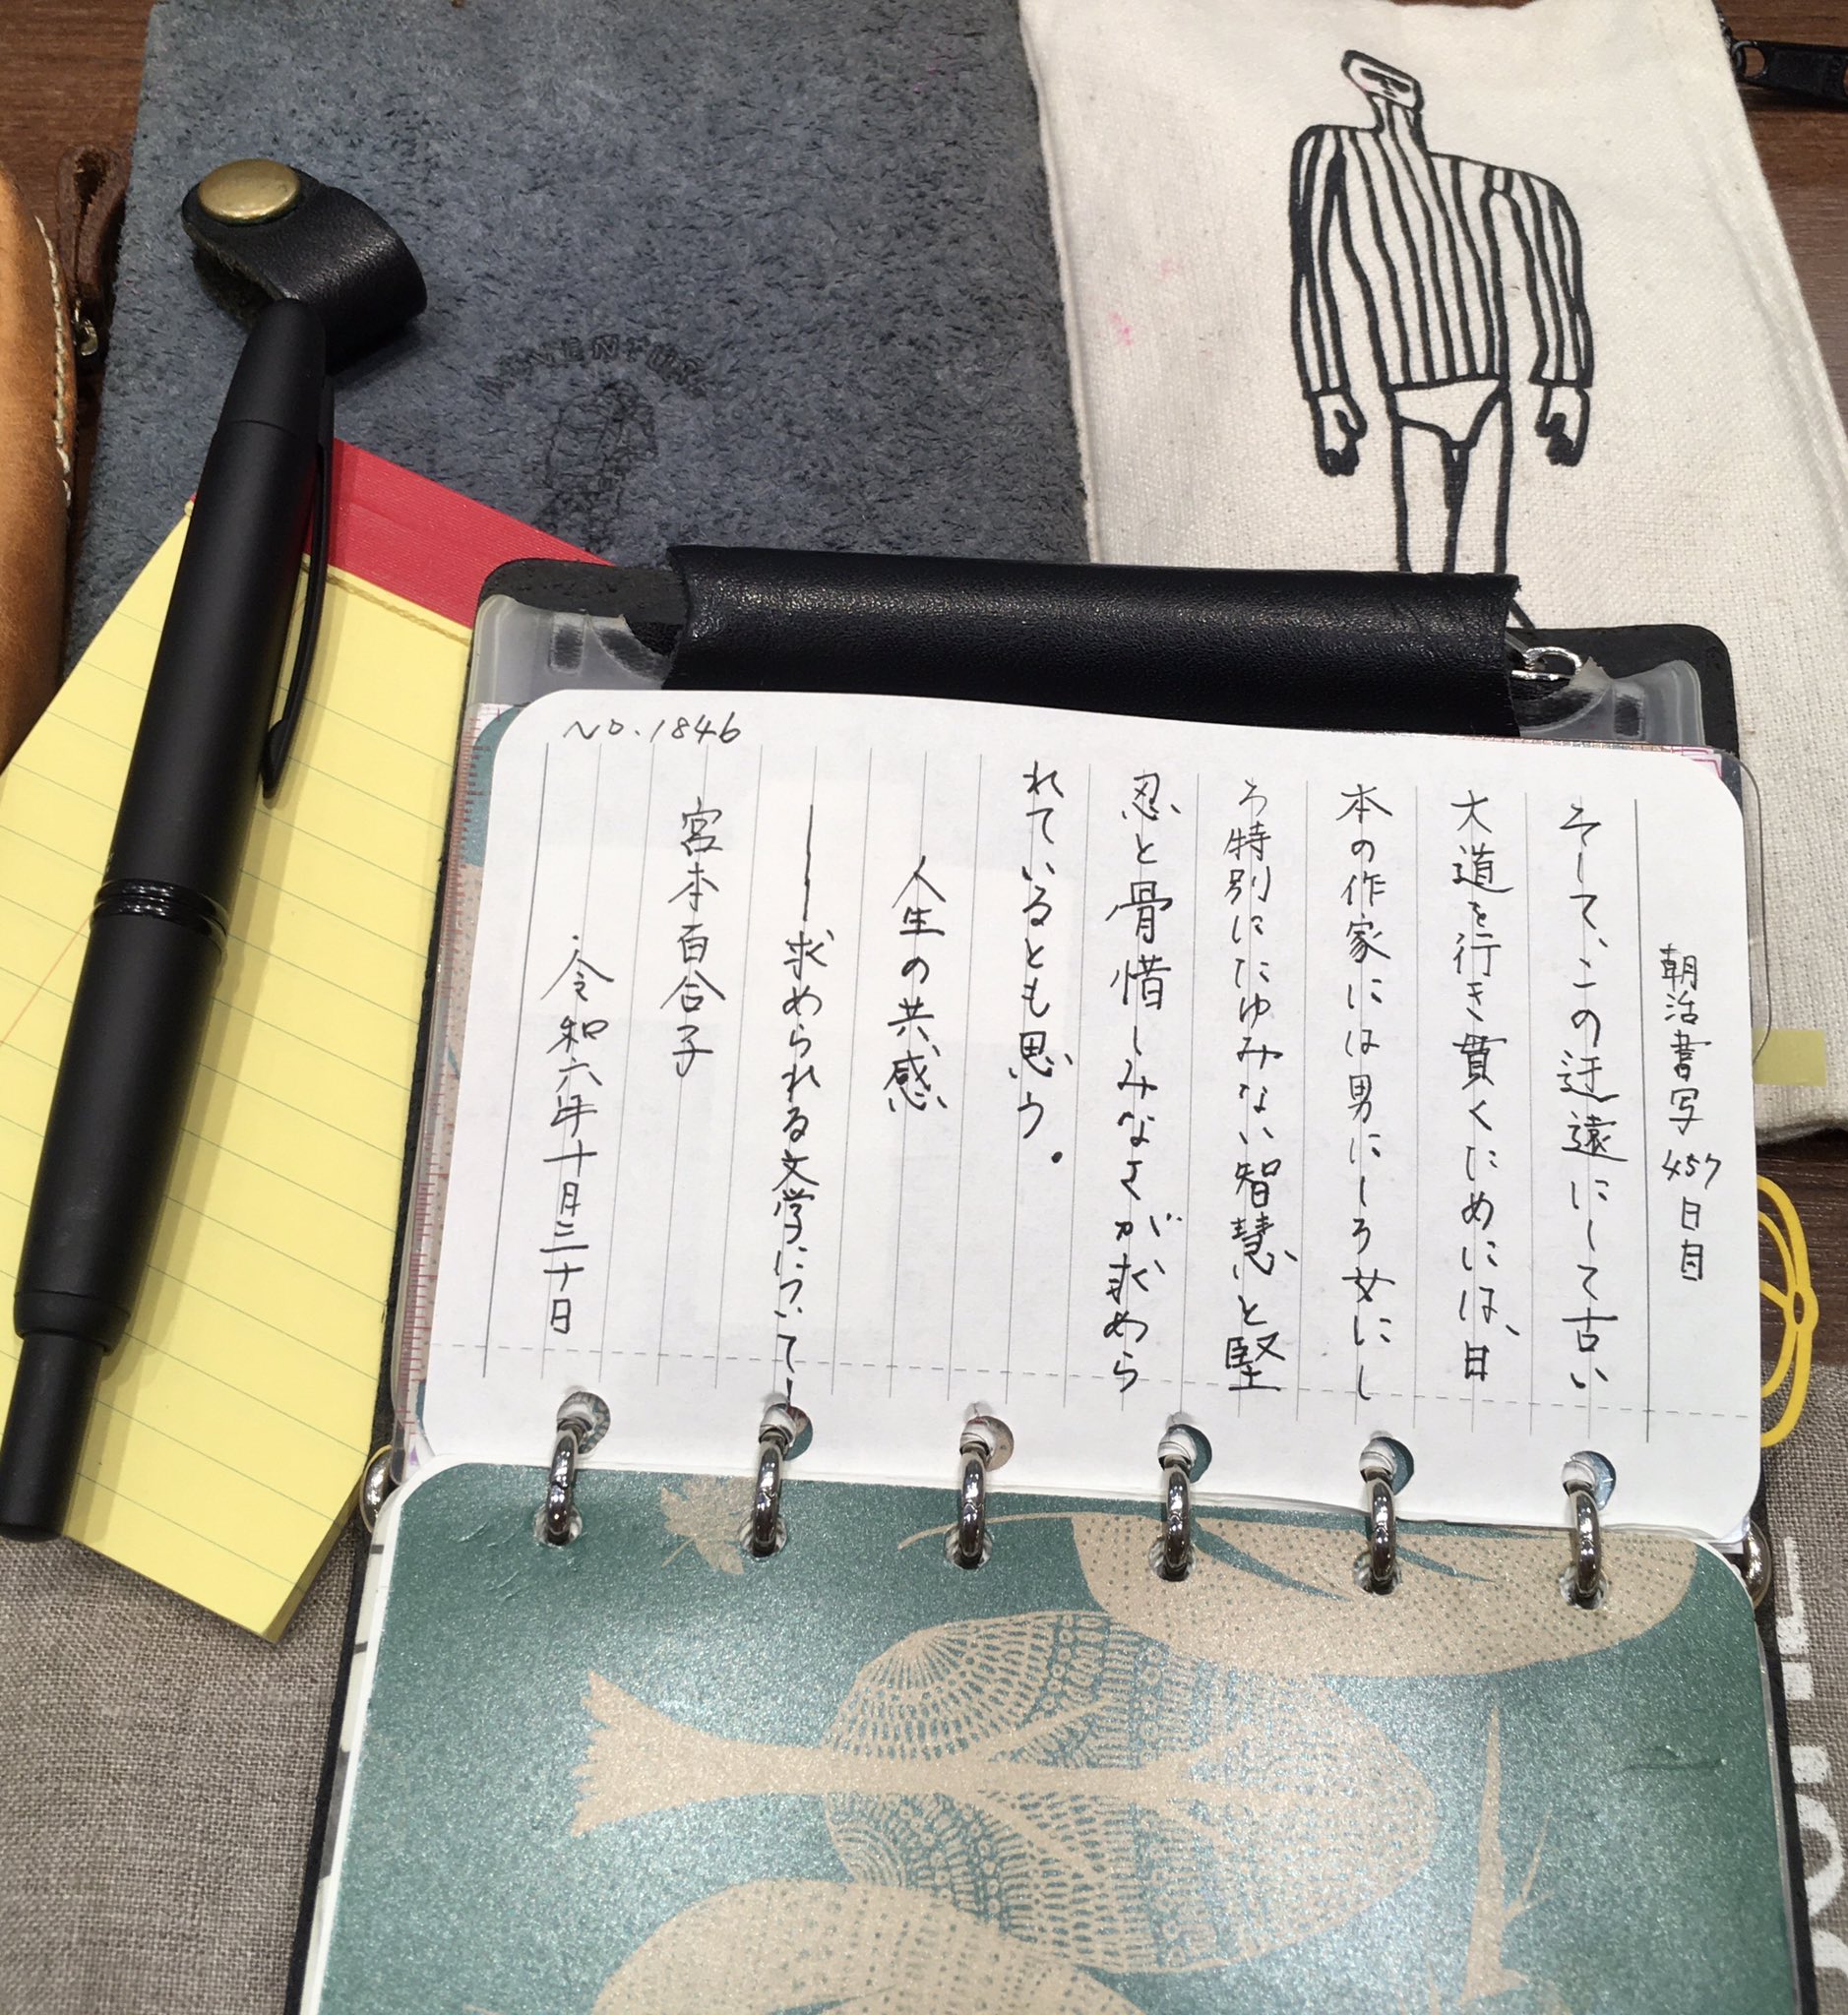 No.1846
朝活書写457日目
そして、この迂遠にして古い
大道を行き貫くためには、日
本の作家には男にしろ女にし
ろ特別にたゆみない智慧と堅
忍と骨惜しみなさが求めら
れているとも思う。
人生の共感
――求められる文学について――
宮本百合子
令和六年十月三十日